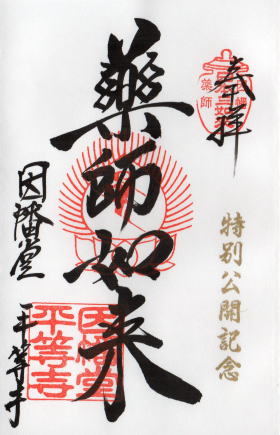 奉拝
特別公開記念
薬師
藥師如来
因幡堂
平等寺
因幡堂
平等寺